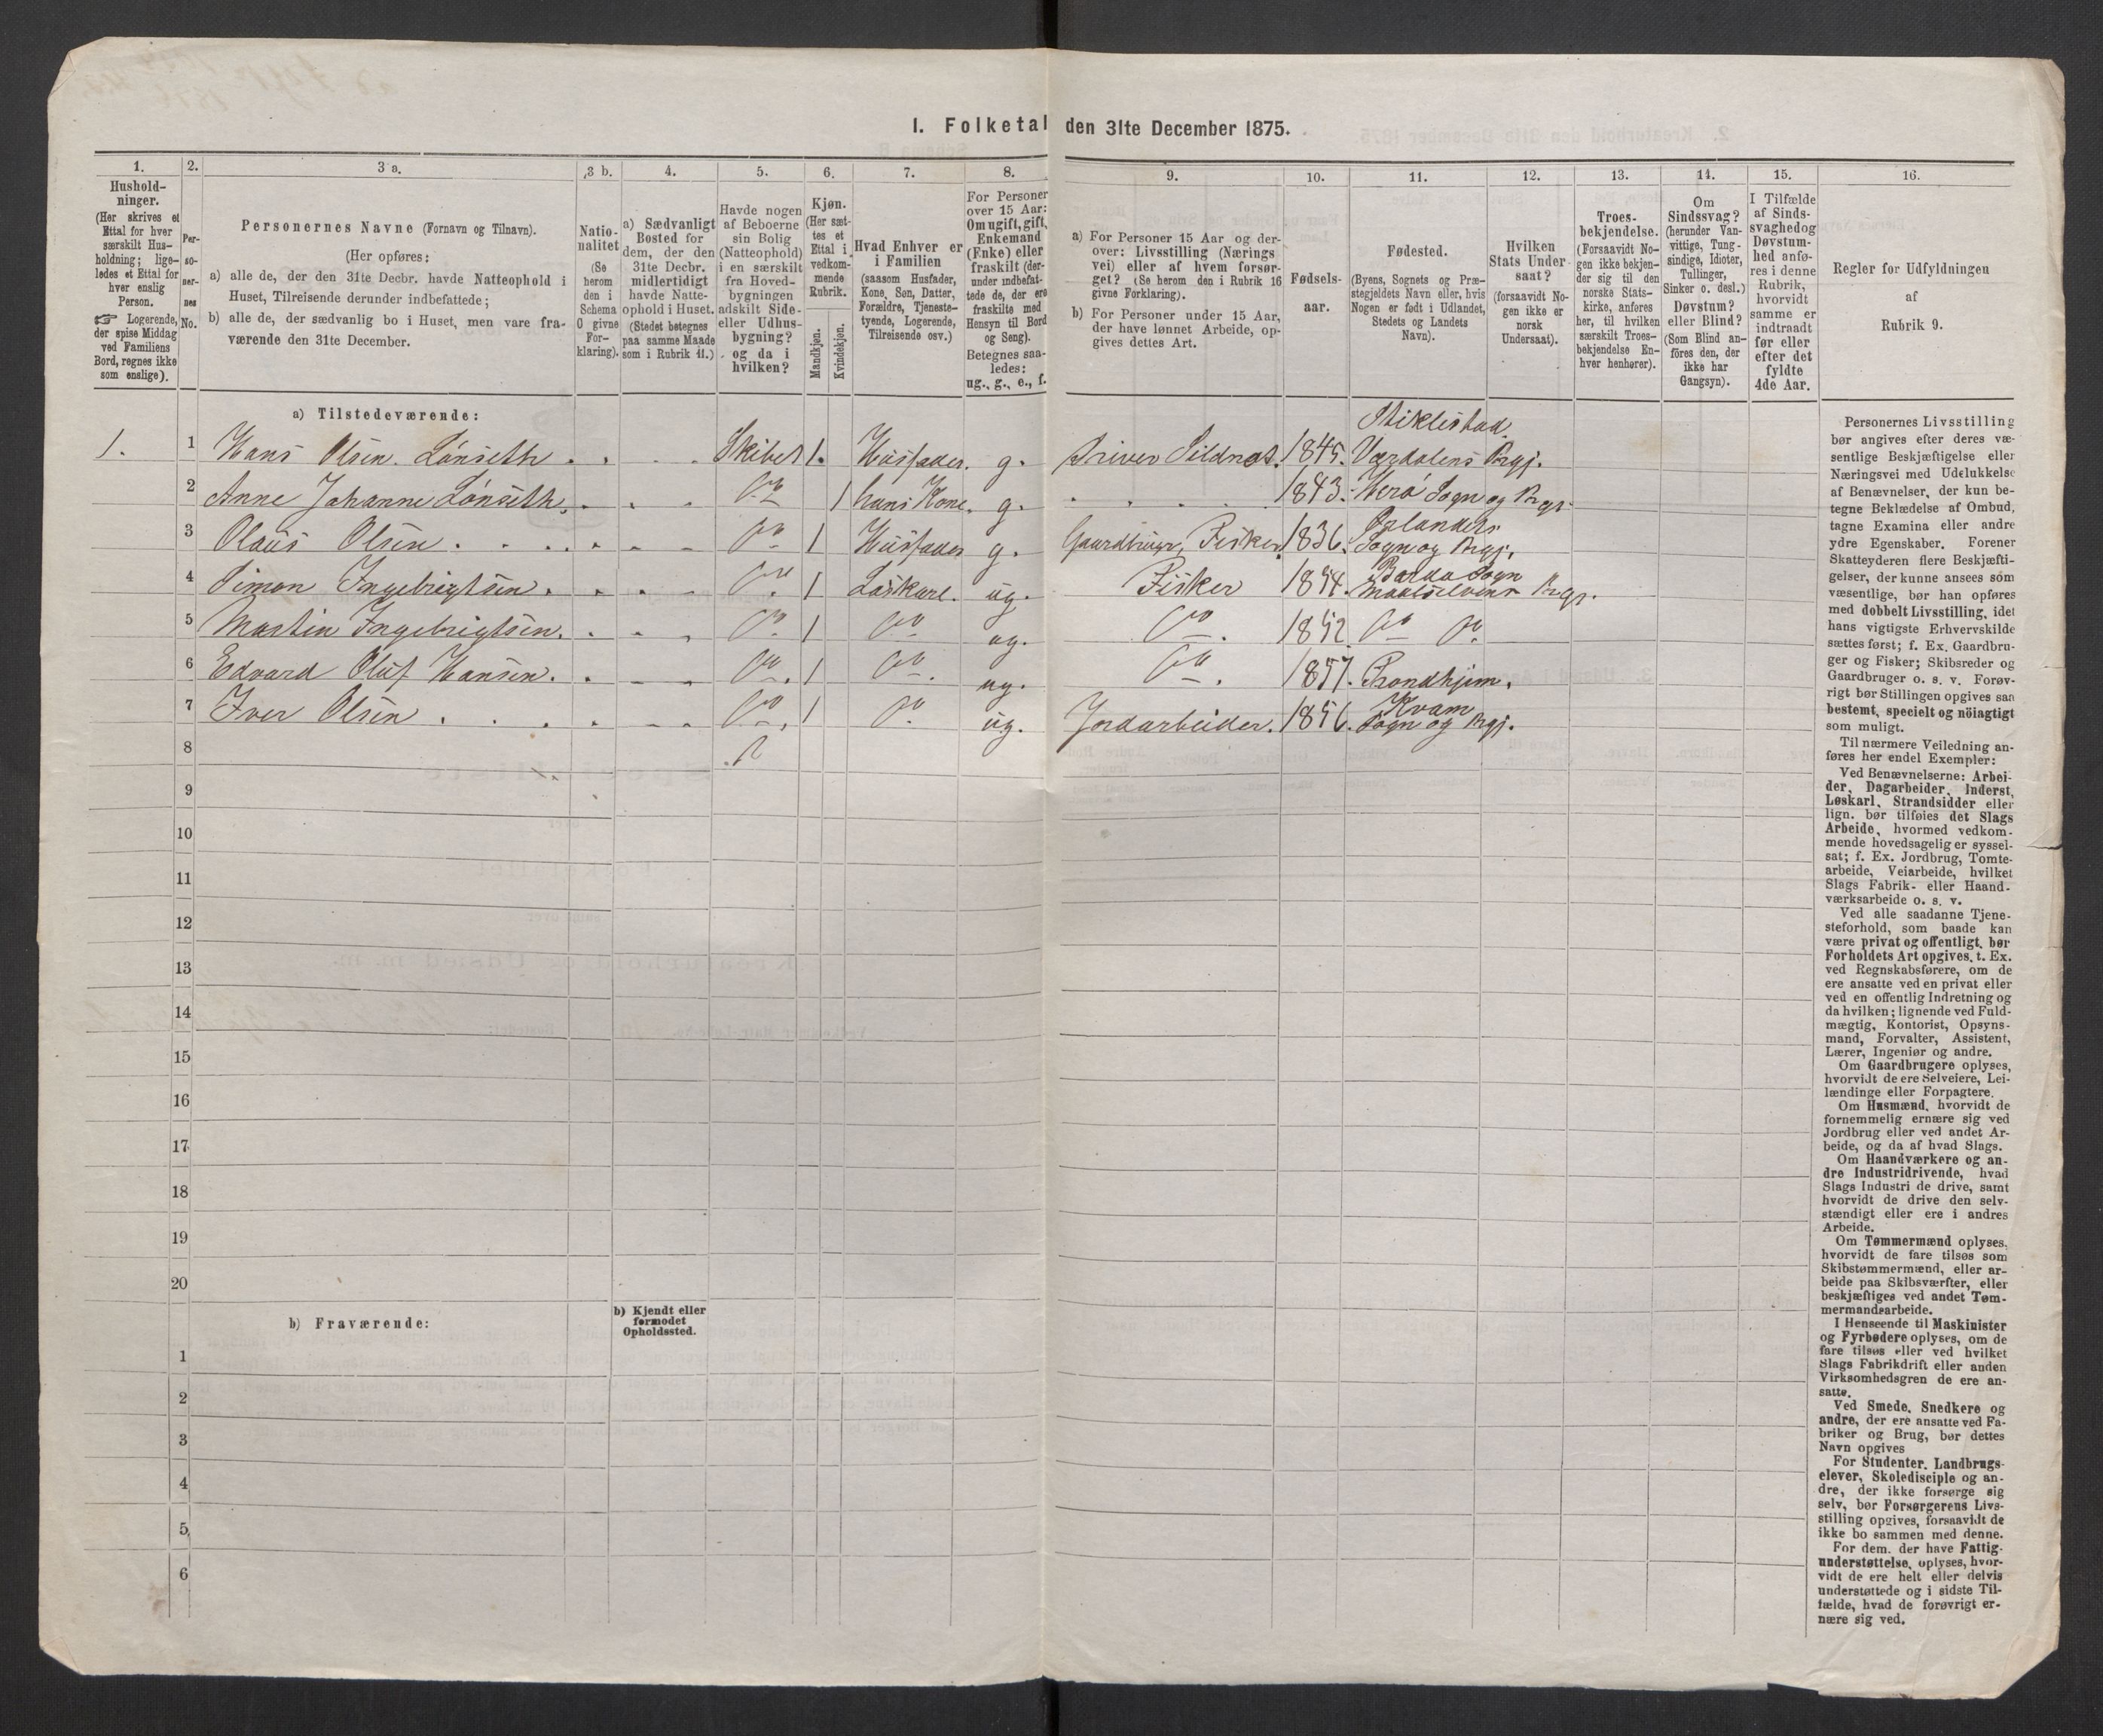 I. Folketal den 31te December 1875.
1.
Hushold-
ninger.
(Her skrives et
Ettal for hver
særskilt Hus-
holdning; lige-
ledes et Ettal for
hver enslig
Person.
☞ Logerende,
der spise Middag
ved Familiens
Bord, regnes ikke
som enslige).
2.
Per-
so-
ner-
nes
No.
3 a.
Personernes Navne (Fornavn og Tilnavn).
(Her opføres:
a) alle de, der den 31te Decbr. havde Natteophold i
Huset, Tilreisende derunder indbefattede;
b) alle de, der sædvanlig bo i Huset, men vare fra-
værende den 31te December.
3 b.
Natio-
nalitet
(Se
herom
den i
Schema
O givne
For-
klaring).
4.
a) Sædvanligt
Bosted for
dem, der den
31te Decbr.
midlertidigt
havde Natte-
ophold i Huset.
(Stedet betegnes
paa samme Maade
som i Rubrik 11.)
5.
Havde nogen
af Beboerne
sin Bolig
(Natteophold)
i en særskilt
fra Hoved-
bygningen
adskilt Side-
eller Udhus-
bygning?
og da i
hvilken?
6.
Kjøn.
(Her sæt-
tes et
Ettal i
vedkom-
mende
Rubrik.
Mandkjøn.
Kvindekjøn.
7.
Hvad Enhver er
i Familien
(saasom Husfader,
Kone, Søn, Datter,
Forældre, Tjeneste-
tyende, Logerende,
Tilreisende osv.)
8.
For Personer
over 15 Aar:
Om ugift, gift,
Enkemand
(Enke) eller
fraskilt (der-
under indbefat-
tede de, der ere
fraskilte med
Hensyn til Bord
og Seng).
Betegnes saa-
ledes:
ug., g., e., f.
9.
a) For Personer 15 Aar og der-
over: Livsstilling (Nærings
vei) eller af hvem forsør-
get? (Se herom den i Rubrik 16
givne Forklaring).
b) For Personer under 15 Aar,
der have lønnet Arbeide, op-
gives dettes Art.
10.
Fødsels-
aar.
11.
Fødested.
(Byens, Sognets og Præ-
stegjeldets Navn eller, hvis
Nogen er født i Udlandet,
Stedets og Landets
Navn).
12.
Hvilken
Stats Under
saat?
(forsaavidt No-
gen ikke er
norsk
Undersaat).
13.
Troes-
bekjendelse.
(Forsaavidt No-
gen ikke bekjen-
der sig til den
norske Stats-
kirke, anføres
her, til hvilken
særskilt Troes-
bekjendelse En-
hver henhører).
14.
Om
Sindssvag?
(herunder Van-
vittige, Tung-
sindige, Idioter,
Tullinger,
Sinker o. desl.)
Døvstum?
eller Blind?
(Som Blind an-
föres den, der
ikke har
Gangsyn).
15.
I Tilfælde
af Sinds-
svaghed og
Døvstum-
hed anfø-
res i denne
Rubrik,
hvorvidt
samme er
indtraadt
før eller
efter det
fyldte
4de Aar.
16.
Regler for Udfyldningen
af
Rubrik 9.
a) Tilstedeværende:
Stiklestad
1. 1 Hans Olsen Lønseth Skibet 1. Husfader. g. Driver Sildnot. 1845. Værdalens Prgj.
2 Anne Johanne Lønseth. Do 1 hans Kone. g. 1843. Herø Sogn og Prgj.
Ørlandets
3 Olaus Olsen Do 1 Husfader g. Gaardbruger, Fisker 1836. Sogn og Prgj.
Bardo Sogn
4 Simon Ingebrigtsen. Do 1 Løskarl. ug. Fisker 1854. Maalselvens Prgj.
5 Martin Ingebrigtsen. Do 1 Do ug. Do. 1852 Do Do
6 Edvard Oluf Hansen. Do. 1 Do. ug. Do. 1857. Trondhjem.
Kvam
7 Iver Olsen Do. 1 Do ug. Jordarbeider. 1856. Sogn og Prgj.
8
9
10
11
12
13
14
15
16
17
18
19
20
b) Fraværende:
b) Kjendt eller
formodet
Opholdssted.
1
2
3
4
5
6
Personernes Livsstilling
bør angives efter deres væ-
sentlige Beskjæftigelse eller
Næringsvei med Udelukkelse
af Benævnelser, der kun be-
tegne Beklædelse af Ombud,
tagne Examina eller andre
ydre Egenskaber. Forener
Skatteyderen flere Beskjæfti-
gelser, der kunne ansees som
væsentlige, bør han opføres
med dobbelt Livsstilling, idet
hans vigtigste Erhvervskilde
sættes først; f. Ex. Gaardbru-
ger og Fisker; Skibsreder og
Gaardbruger o. s. v. Forøv-
rigt bør Stillingen opgives saa
bestemt, specielt og nöiagtigt
som muligt.
Til nærmere Veiledning an-
føres her endel Exempler:
Ved Benævnelserne: Arbei-
der, Dagarbeider, Inderst,
Løskarl, Strandsidder eller
lign. bør tilføies det Slags
Arbeide, hvormed vedkom-
mende hovedsagelig er syssel-
sat; f. Ex. Jordbrug, Tomte-
arbeide, Veiarbeide, hvilket
Slags Fabrik- eller Haand-
værksarbeide o. s. v.
Ved alle saadanne Tjene-
steforhold, som baade kan
være privat og offentligt, bør
Forholdets Art opgives, t. Ex.
ved Regnskabsførere, om de
ere ansatte ved en privat eller
ved en offentlig Indretning og
da hvilken; lignende ved Fuld-
mægtig, Kontorist, Opsyns-
mand, Forvalter, Assistent,
Lærer, Ingeniør og andre.
Om Gaardbrugere oplyses,
hvorvidt de ere Selveiere, Lei-
lændinge eller Forpagtere.
Om Husmænd, hvorvidt de
fornemmelig ernære sig ved
Jordbrug eller ved andet Ar-
beide, og da af hvad Slags.
Om Haandværkere og an-
dre Industridrivende, hvad
Slags Industri de drive, samt
hvorvidt de drive den selv-
stændigt eller ere i andres
Arbeide.
Om Tømmermænd oplyses,
hvorvidt de fare tilsøs som
Skibstømmermænd, eller ar-
beide paa Skibsværfter, eller
beskjæftiges ved andet Tøm-
mermandsarbeide.
I Henseende til Maskinister
og Fyrbødere oplyses, om de
fare tilsøs eller ved hvilket
Slags Fabrikdrift eller anden
Virksomhedsgren de ere an-
satte.
Ved Smede, Snedkere og
andre, der ere ansatte ved Fa-
briker og Brug, bør dettes
Navn opgives
For Studenter, Landbrugs-
elever, Skoledisciple og an-
dre, der ikke forsørge sig
selv, bør Forsørgerens Livs-
stilling opgives, forsaavidt de
ikke bo sammen med denne.
For dem, der have Fattig-
understøttelse, oplyses, hvor-
vidt de ere helt eller delvis
understøttede og i sidste Til-
fælde, hvad de forøvrigt er-
nære sig ved.